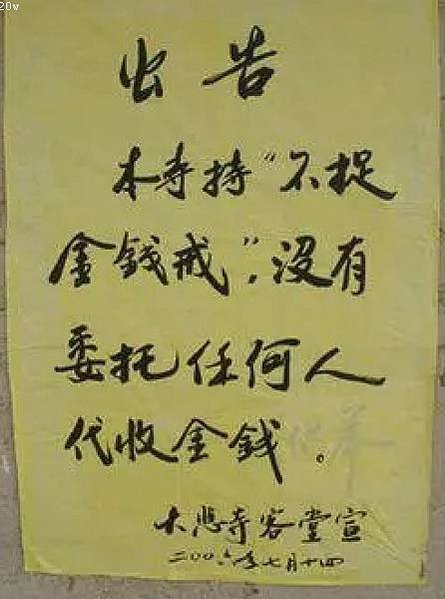 20v
出告
本寺持“不捉
金錢戒”,没有
委托任何人
代收金錢。
大悲寺客堂宣
二00六年七月十四